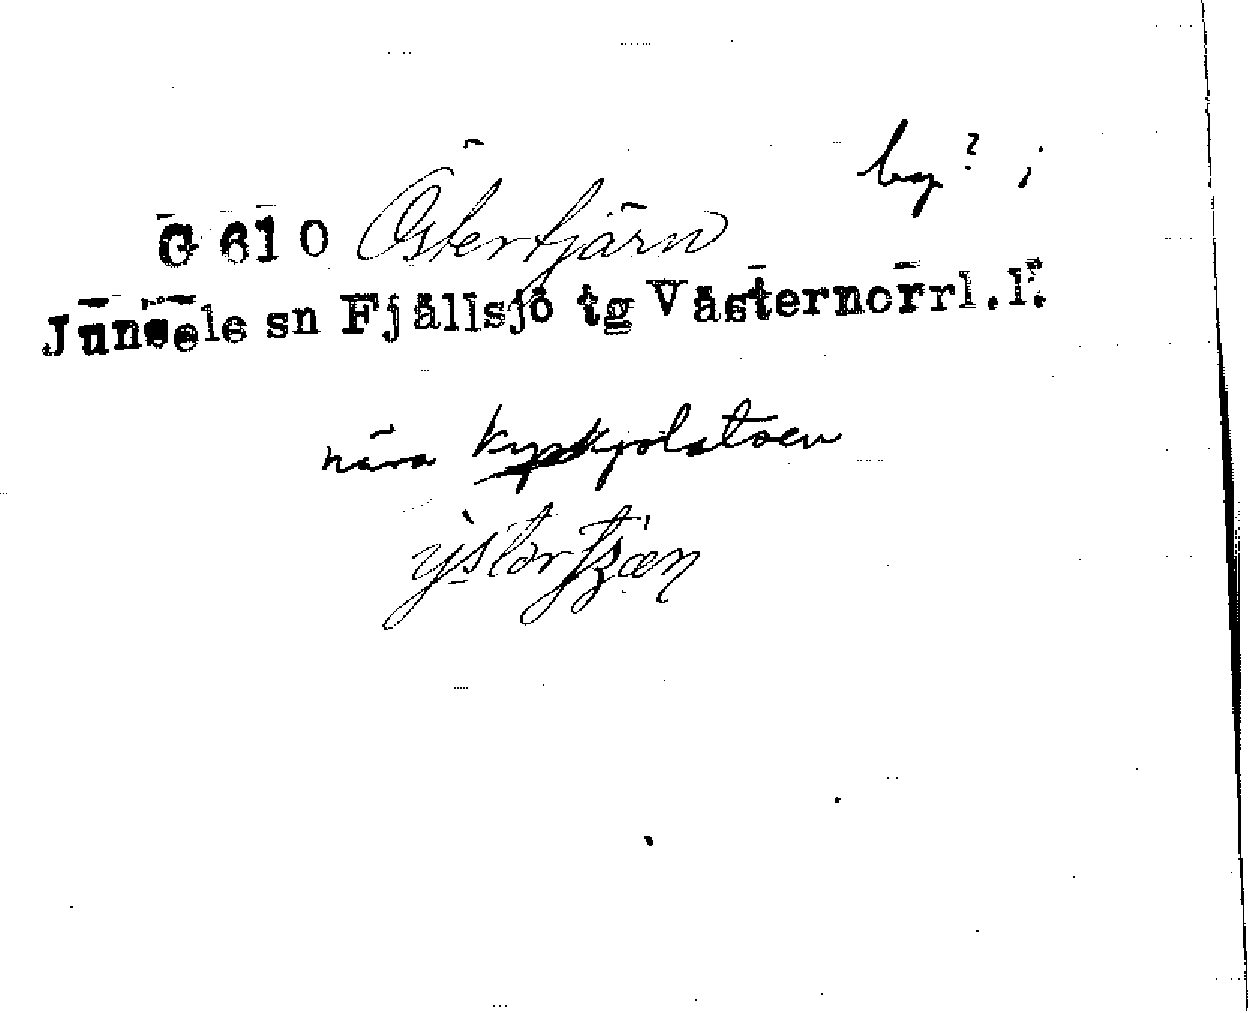 by? i
G 610 Östertjärn
Junsele sn Fjällsjö tg Västernorrl.l.
nära kyrkplatsen